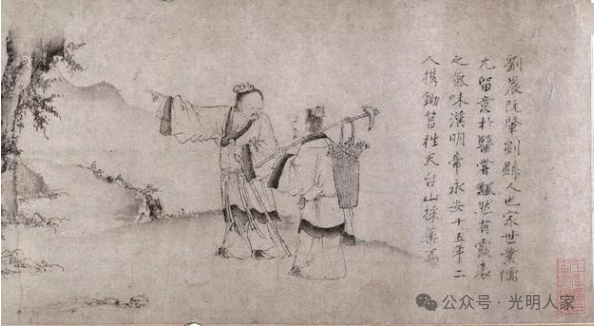 劉晨阮肇剡縣人也家世業儒
尤留意於醫嘗飄然有霞表
之氣味漢明帝永安十五年二
人携鋤筥往天台山採藥焉
公众号·光明人家